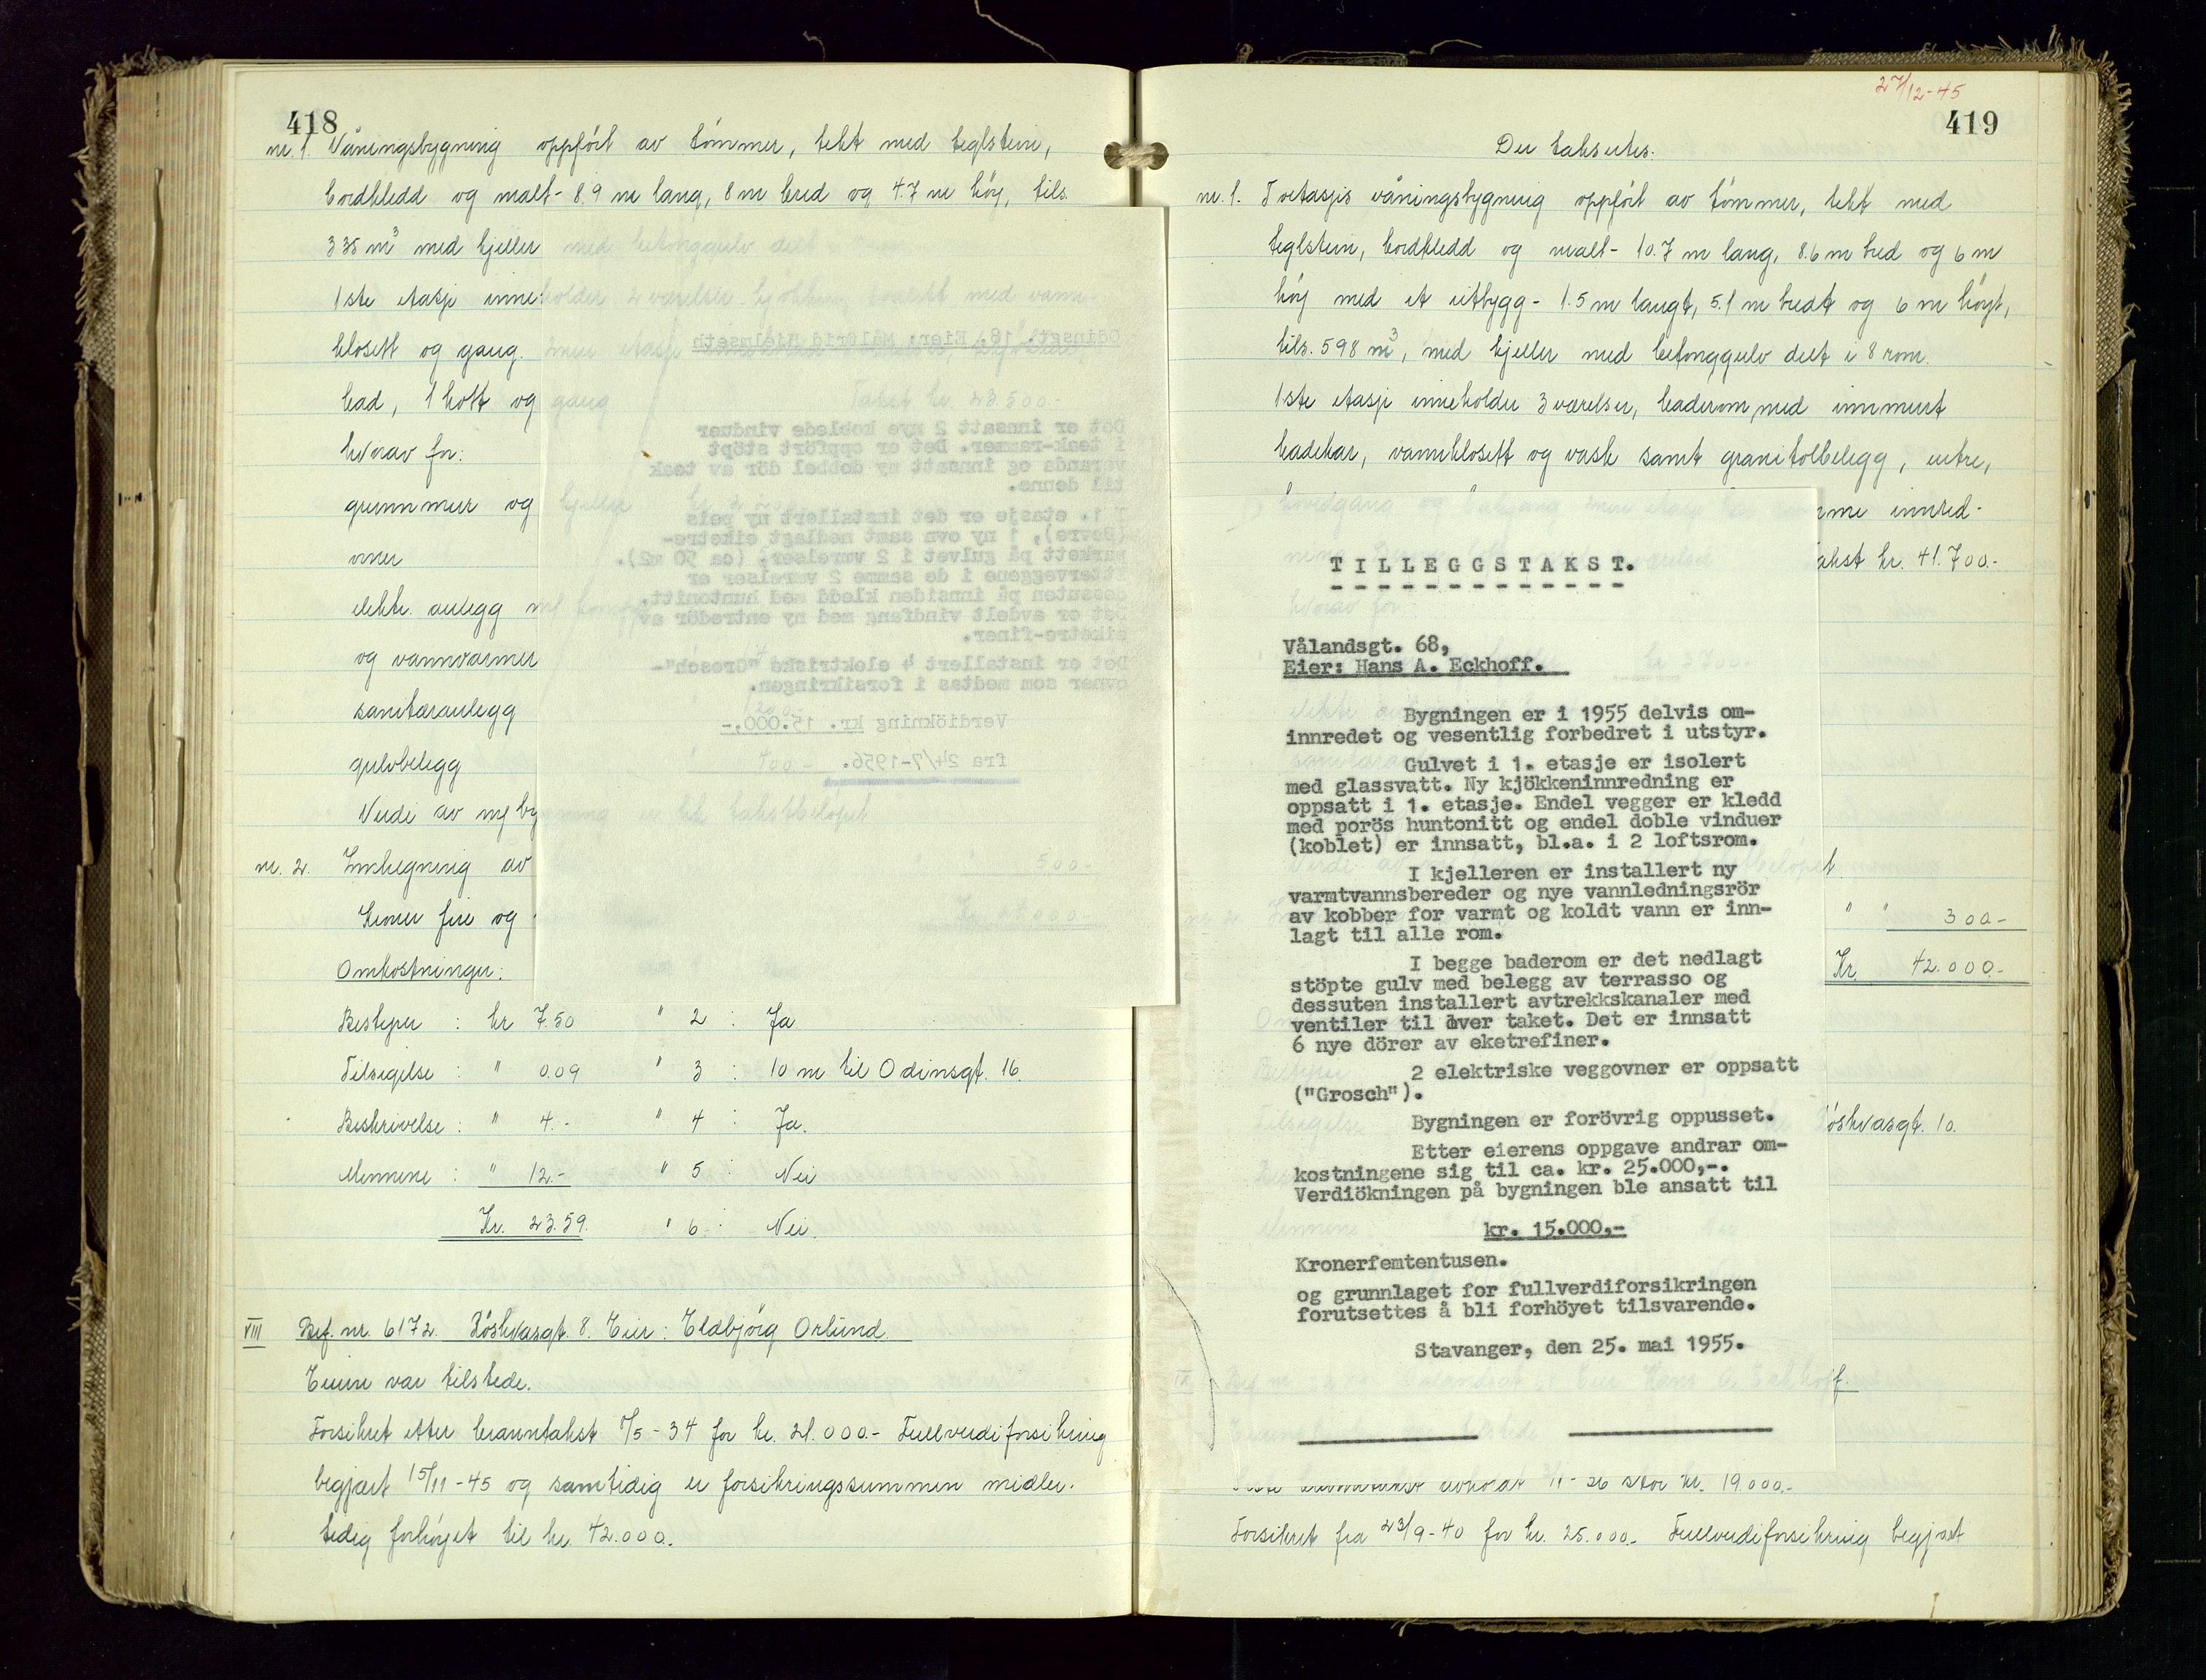 418
nr. 1. Våningsbygning oppfört av tömmer, tekt med teglstein,
bordkledd og malt - 8.9 m lang, 8 m bred og 4.7 m höy, tils.
335 m³ med kjeller med betonggulv delt
1ste etasje inneholder 2 værelser, kjökken, med vann-
klosett og gang. 2nen etasje
bad, 1 kott og gang
hvorav for:
grunnmur og kjeller
ovner
elektr. anlegg
og vannvarmer
sanitæranlegg
gulvbelegg
Verdi av nybygning er lik takstbelöpet
nr. 2. Innhegning av
kroner fire og
Omkostninger:
Bestyrer : kr 7.50 " 2 : Ja
Tilsigelse : " 0.09 " 3 : 10 m til Odinsgt. 16.
Beskrivelse : " 4.- " 4 : Ja.
Mennene : " 12.- " 5 : Nei
Kr. 23.59. " 6 : Nei.
VIII Bef. nr. 6172. Röskvasgt. 8. Eier: Eldbjörg Orlund.
Eieren var tilstede.
Forsikret etter branntakst 7/5-34 for kr. 21.000.- Fullverdiforsikring
begjært 15/11-45 og samtidig er forsikringssummen midler-
tidig forhöyet til kr. 42.000.
Odinsgt. 18. Eier: Målfrid Hjelmseth
Takst kr. 23.500.-
Det er innsatt 2 nye koblede vinduer
i teak-rammer. Det er oppfört stöpt
veranda og innsatt ny dobbel dör av teak
til denne.
I 1. etasje er det installert ny peis
(Dovre), 1 ny ovn samt nedlagt eiketre-
parkett på gulvet i 2 værelser, (ca 50 m2).
Ytterveggene i de samme 2 værelser er
dessuten på innsiden kledd med huntonitt.
Det er avdelt vindfang med ny entredör av
eiketre-finer.
Det er installert 4 elektriske "Grosch"-
ovner som medtas i forsikringen.
Verdiökning kr. 15.000,-
fra 24/7-1956.
27/12-45
419
Der takseres.
nr. 1. Toetasjes våningsbygning oppfört av tömmer, tekt med
teglstein, bordkledd og malt - 10.7 m lang, 8.6 m bred og 6 m
höy med et utbygg - 1.5 m langt, 5.1 m bredt og 6 m höyt,
tils. 598 m³, med kjeller med betonggulv delt i 8 rom.
1ste etasje inneholder 3 værelser, baderom med innmurt
badekar, vannklosett og vask samt granitolbelegg, entre,
innred-
kr. 41.700.-
" " 300.-
Kr. 42.000.-
Röskvasgt. 10.
TILLEGGSTAKST.
Vålandsgt. 68,
Eier: Hans A. Eckhoff.
Bygningen er i 1955 delvis om-
innredet og vesentlig forbedret i utstyr.
Gulvet i 1. etasje er isolert
med glassvatt. Ny kjökkeninnredning er
oppsatt i 1. etasje. Endel vegger er kledd
med porös huntonitt og endel doble vinduer
(koblet) er innsatt, bl.a. i 2 loftsrom.
I kjelleren er installert ny
varmtvannsbereder og nye vannledningsrör
av kobber for varmt og koldt vann er inn-
lagt til alle rom.
I begge baderom er det nedlagt
stöpte gulv med belegg av terrasso og
dessuten installert avtrekkskanaler med
ventiler til över taket. Det er innsatt
6 nye dörer av eketrefiner.
2 elektriske veggovner er oppsatt
("Grosch").
Bygningen er forövrig oppusset.
Etter eierens oppgave andrar om-
kostningene sig til ca. kr. 25.000,-.
Verdiökningen på bygningen ble ansatt til
kr. 15.000,-
Kronerfemtentusen.
og grunnlaget for fullverdiforsikringen
forutsettes å bli forhöyet tilsvarende.
Stavanger, den 25. mai 1955.
kr. 19.000.-
Forsikret fra 23/9-40 for kr. 25.000.- Fullverdiforsikring begjært